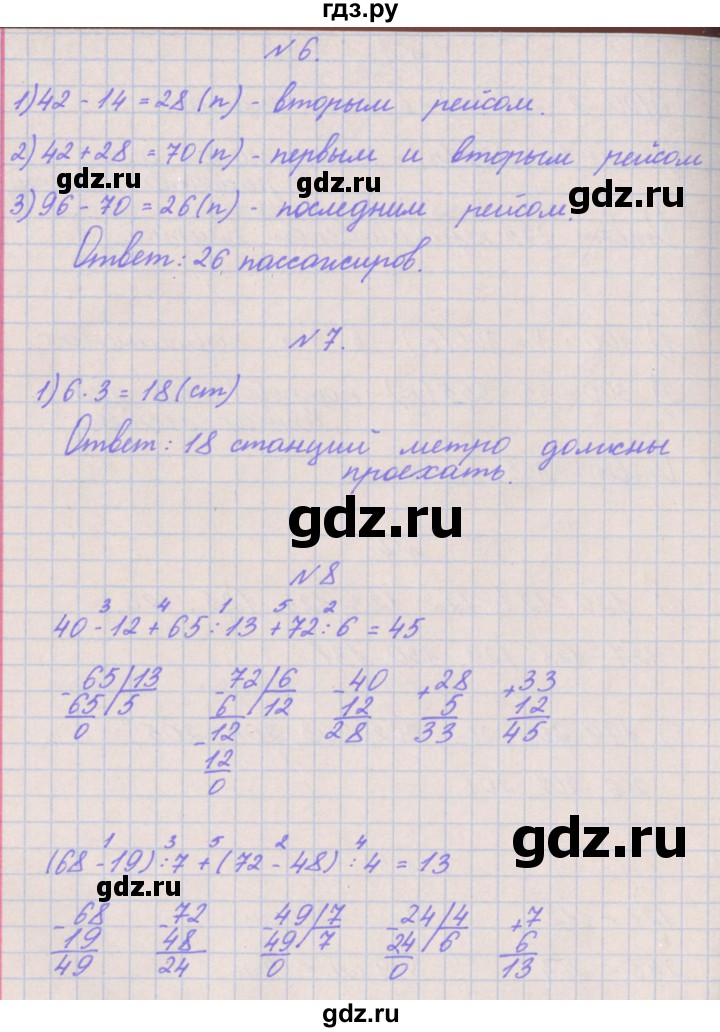 гдз.ру
№ 6.
1) 42 - 14 = 28 (п) - вторым рейсом.
2) 42 + 28 = 70 (п) - первым и вторым рейсом
gdz.ru
gdz.ru
3) 96 - 70 = 26 (п) - последним рейсом.
Ответ: 26 пассажиров.
№ 7.
1) 6 · 3 = 18 (ст)
Ответ: 18 станций метро должны
проехать.
gdz.ru
№ 8
3 4 1 5 2
40 - 12 + 65 : 13 + 72 : 6 = 45
- 65 | 13   - 72 | 6   - 40   + 28   + 33
65 | 5   6 | 12   12   5   12
0   - 12   28   33   45
12
0
gdz.ru
1 3 5 2 4
(68 - 19) : 7 + (72 - 48) : 4 = 13
gdz.ru
- 68   - 72   49 | 7   - 24 | 4   + 7
19   48   49 | 7   24 | 6   6
49   24   0   0   13
gdz.ru